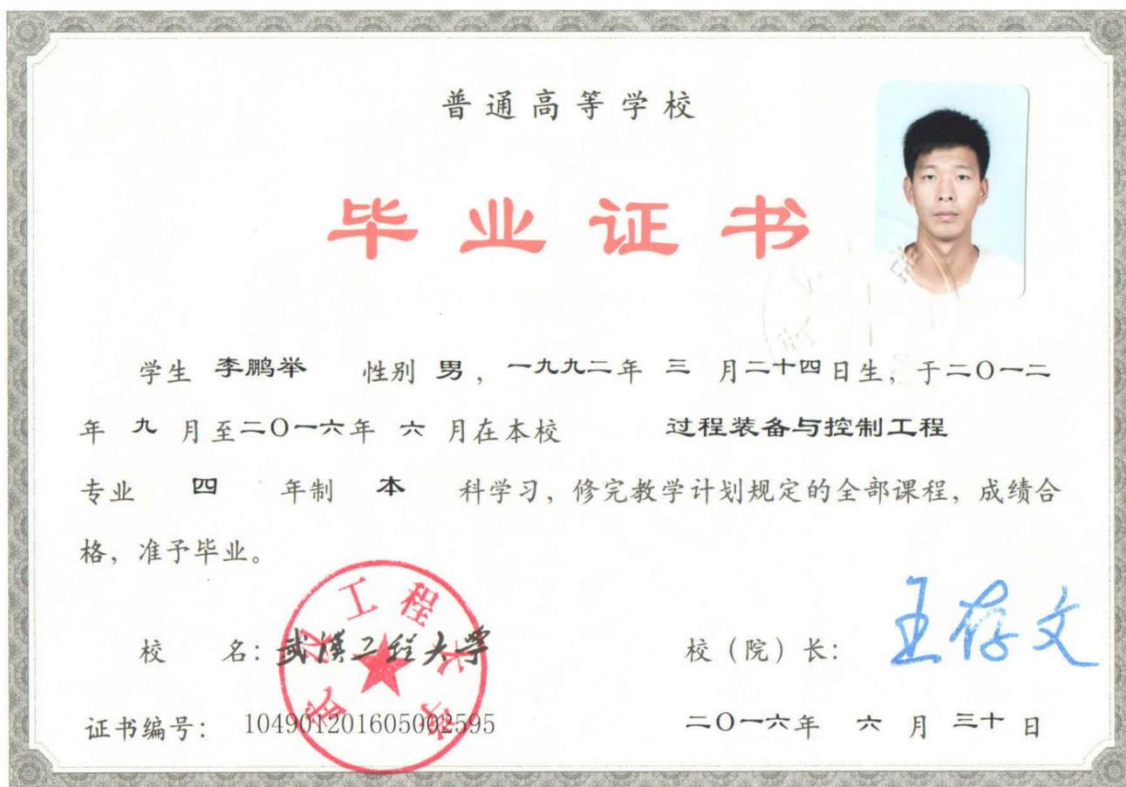 普通高等学校
毕业证书
学生 李鹏举 性别 男，一九九二年 三 月二十四日生，于二〇一二
年 九 月至二〇一六年 六 月在本校 过程装备与控制工程
专业 四 年制 本 科学习，修完教学计划规定的全部课程，成绩合
格，准予毕业。
校 名：武汉工程大学
武汉工程大学
校（院）长：王存文
证书编号：104901201605002595
二〇一六年 六 月 三十 日